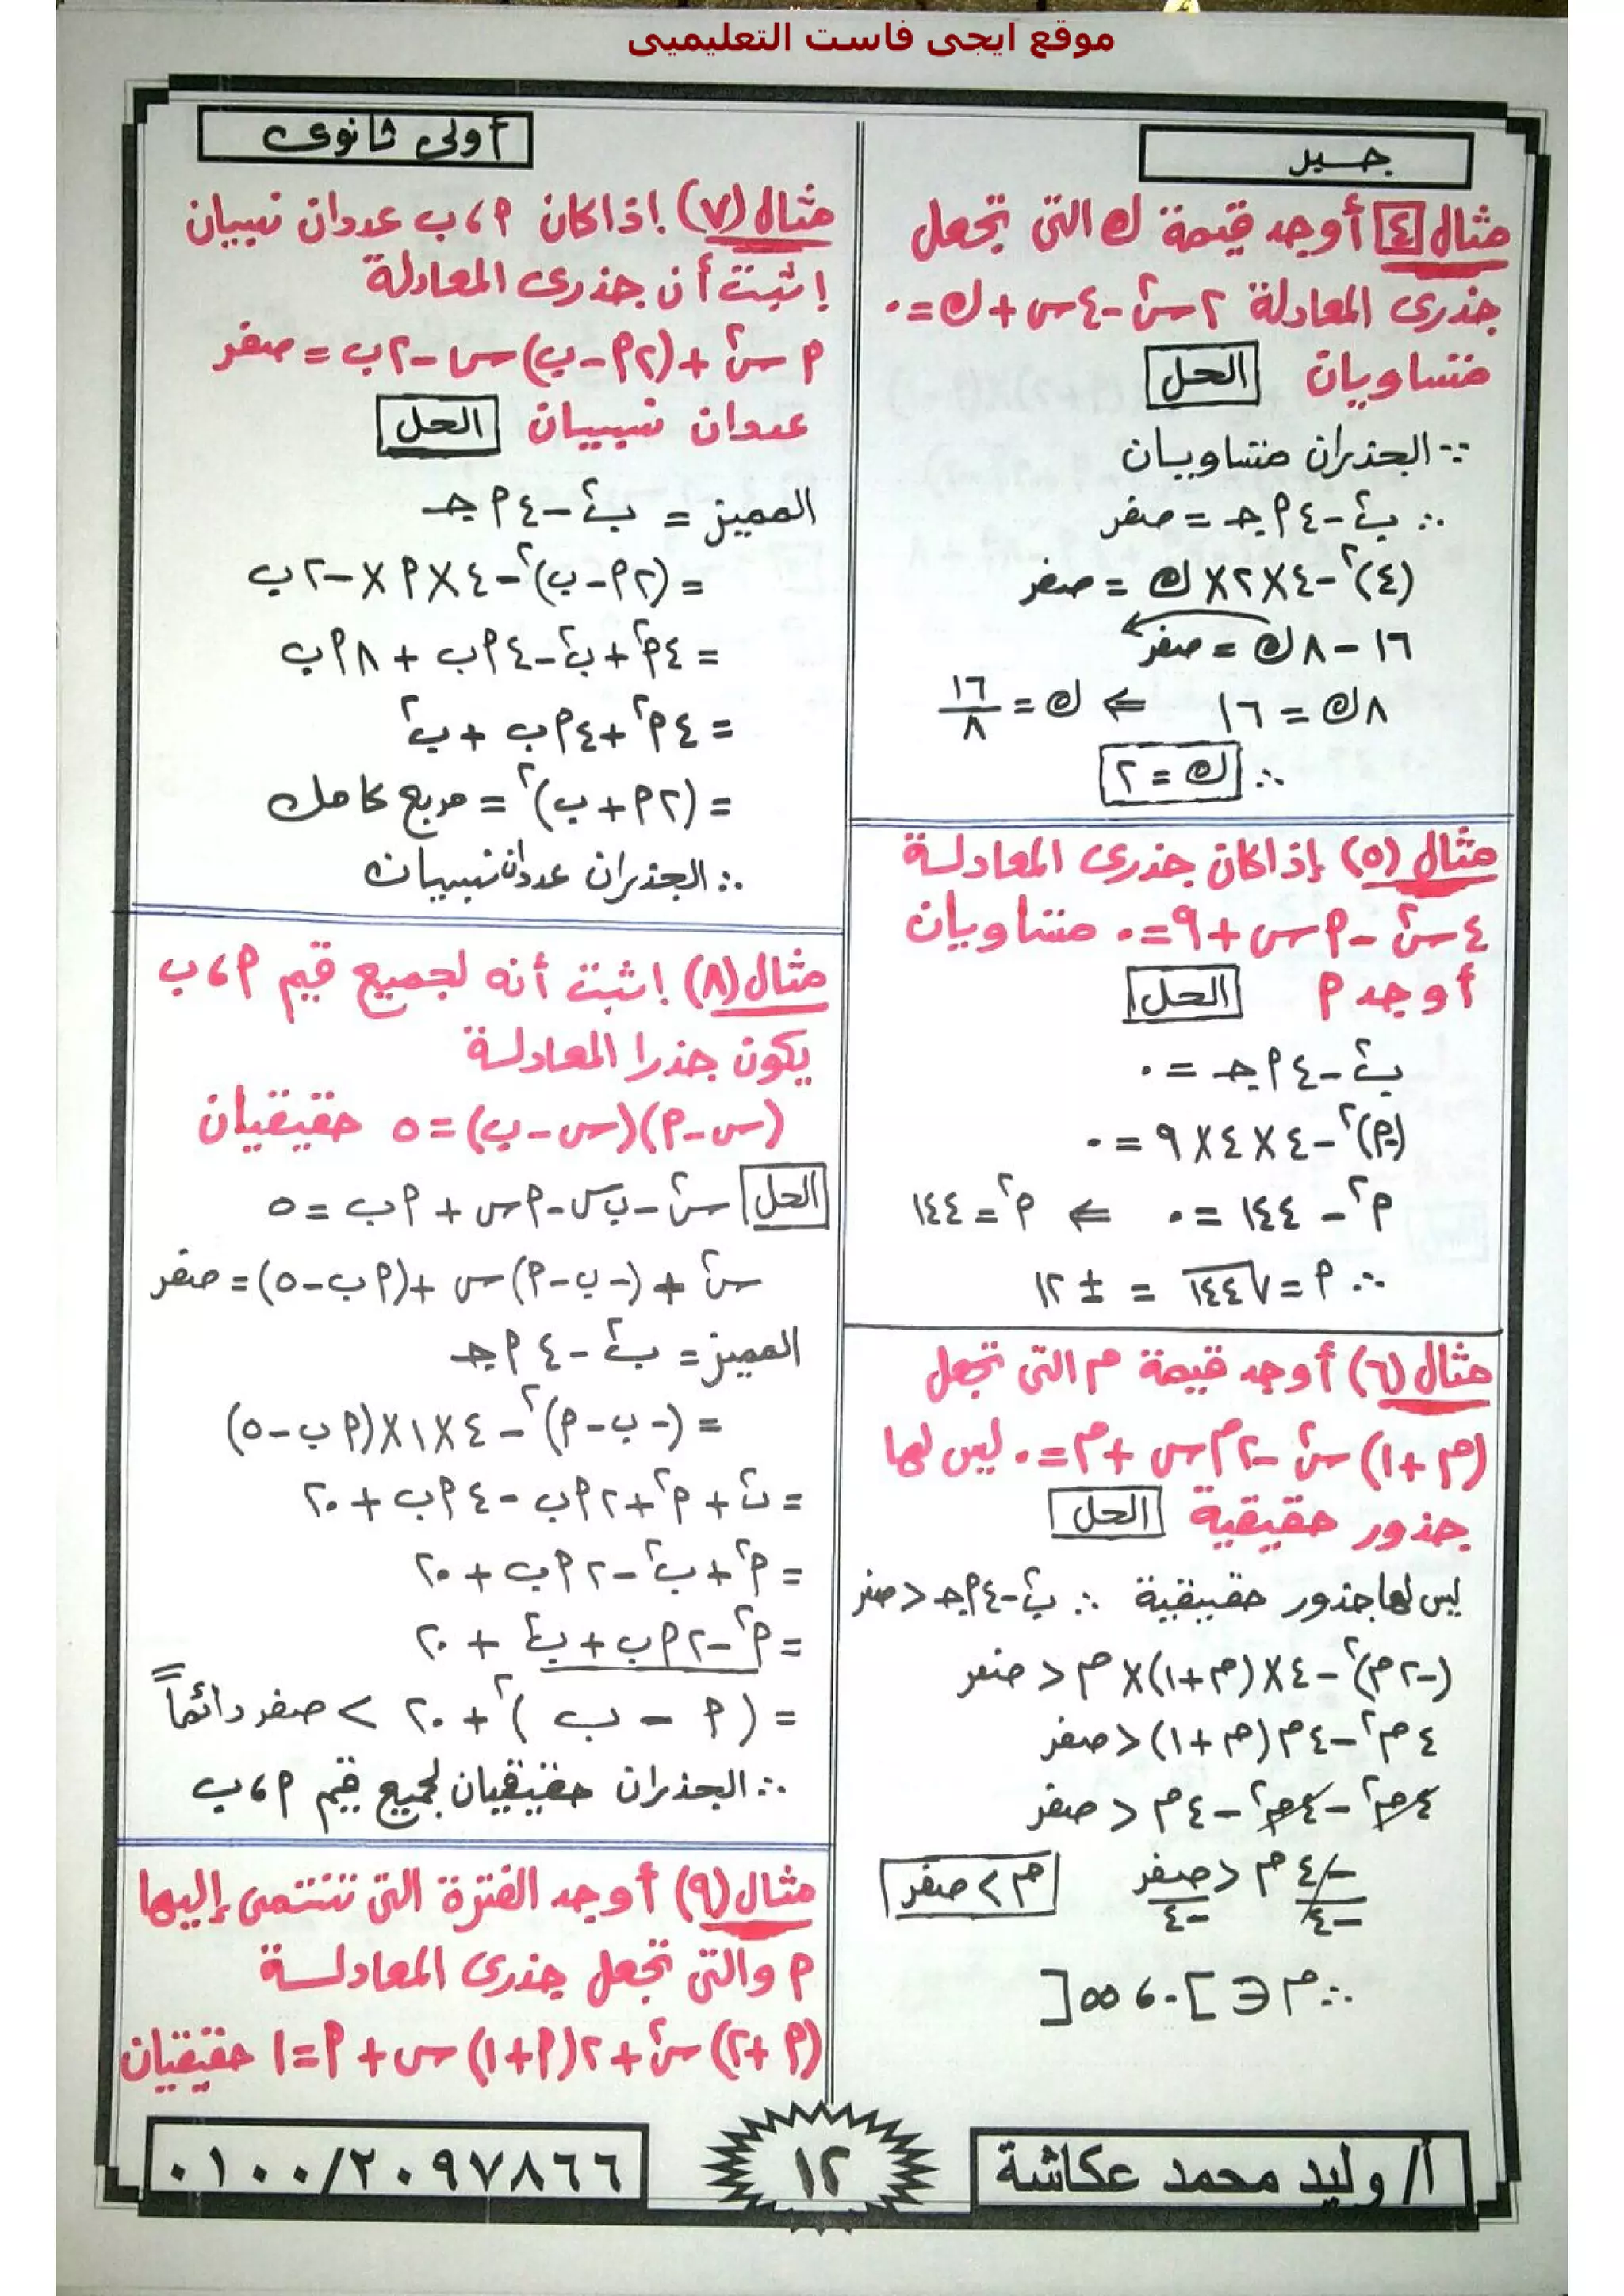 موقع ايجى فاست التعليميى
جبر
مثال ٤ أوجد قيمة ك التى تجعل
جذرى المعادلة ٢س٢-٤س+ك=٠
متساويان الحل
∵ الجذران متساويان
∴ ب٢-٤أجـ = صفر
(٤)٢-٤×٢×ك = صفر
١٦-٨ك = صفر
٨ك = ١٦ ⇐ ك = ١٦/٨
∴ ك = ٢
مثال (٥) إذا كان جذرى المعادلة
٤س٢-أس+٩=٠ متساويان
أوجد أ الحل
ب٢-٤أجـ = ٠
(-أ)٢-٤×٤×٩ = ٠
أ٢-١٤٤ = ٠ ⇐ أ٢ = ١٤٤
∴ أ = √١٤٤ = ± ١٢
مثال (٦) أوجد قيمة م التى تجعل
(م+١)س٢-٢م س+م=٠ ليس لها
جذور حقيقية الحل
ليس لها جذور حقيقية ∴ ب٢-٤أجـ < صفر
(-٢م)٢-٤×(م+١)×م < صفر
٤م٢-٤م(م+١) < صفر
٤م٢-٤م٢-٤م < صفر
-٤م/-٤ < صفر/-٤ م > صفر
∴ م ∈ ]٠، ∞[
أولى ثانوى
مثال (٧) إذا كان أ، ب عددان نسبيان
اثبت أن جذرى المعادلة
أس٢+(٢أ-ب)س-٢ب = صفر
عددان نسبيان الحل
المميز = ب٢-٤أجـ
= (٢أ-ب)٢-٤×أ×-٢ب
= ٤أ٢+ب٢-٤أب+٨أب
= ٤أ٢+٤أب+ب٢
= (٢أ+ب)٢ = مربع كامل
∴ الجذران عددان نسبيان
مثال (٨) اثبت أنه لجميع قيم أ، ب
يكون جذرا المعادلة
(س-أ)(س-ب)=٥ حقيقيان
الحل س٢-ب س-أس+أب = ٥
س٢+(-ب-أ)س+(أب-٥) = صفر
المميز = ب٢-٤أجـ
= (-ب-أ)٢-٤×١×(أب-٥)
= ب٢+أ٢+٢أب-٤أب+٢٠
= أ٢+ب٢-٢أب+٢٠
= أ٢-٢أب+ب٢+٢٠
= (أ-ب)٢+٢٠ > صفر دائماً
∴ الجذران حقيقيان لجميع قيم أ، ب
مثال (٩) أوجد الفترة التى تنتمى إليها
أ والتى تجعل جذرى المعادلة
(أ+٢)س٢+٢(أ+١)س+أ=١ حقيقيان
أ/ وليد محمد عكاشة
١٢
٠١٠٠/٢٠٩٧٨٦٦